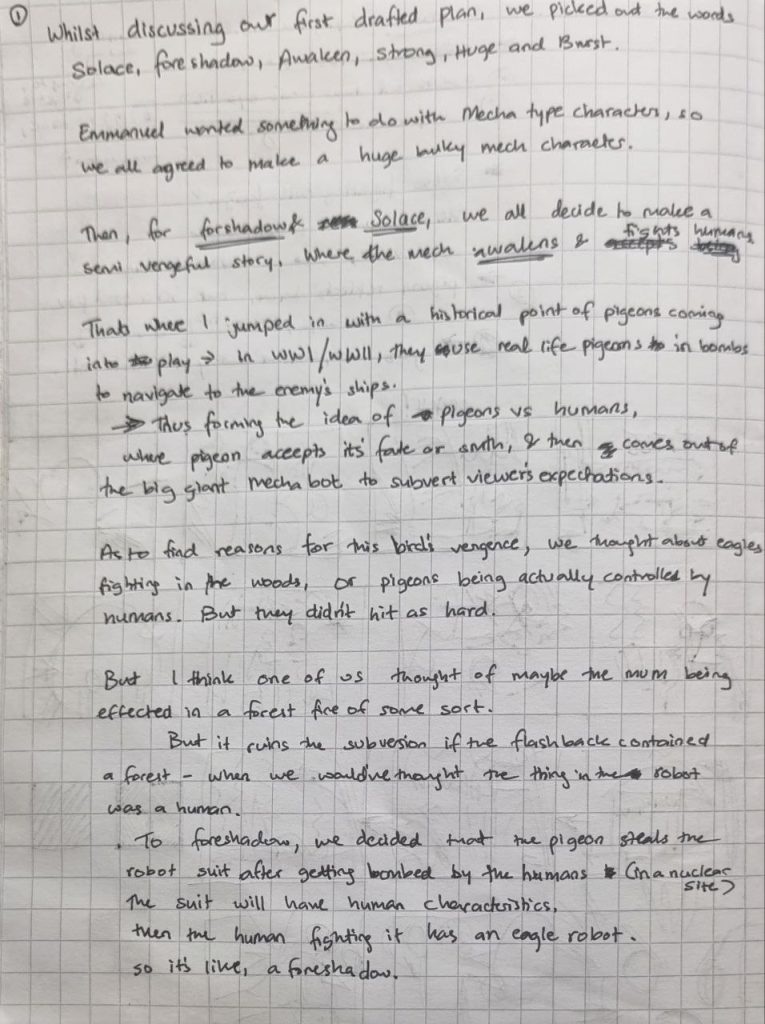 ①
Whilst discussing our first drafted plan, we picked out the words
Solace, foreshadow, Awaken, Strong, Huge and Burst.
Emmanuel wanted something to do with Mecha type characters, so
we all agreed to make a huge bulky mech character.
Then, for forshadow & Solace, we all decide to make a
semi vengeful story. Where the mech awakens & fights humans
Thats where I jumped in with a historical point of pigeons coming
into play → in WWI/WWII, they use real life pigeons in bombs
to navigate to the enemy's ships.
→ Thus forming the idea of pigeons vs humans,
where pigeon accepts its' fate or smth, & then comes out of
the big giant mecha bot to subvert viewer's expectations.
As to find reasons for this bird's vengence, we thought about eagles
fighting in the woods, or pigeons being actually controlled by
humans. But they didn't hit as hard.
But I think one of us thought of maybe the mum being
effected in a forest fire of some sort.
But it ruins the subversion if the flashback contained
a forest - when we would've thought the thing in the robot
was a human.
. To foreshadow, we decided that the pigeon steals the
robot suit after getting bombed by the humans (in a nuclear
site)
The suit will have human characteristics,
then the human fighting it has an eagle robot.
so it's like, a foreshadow.